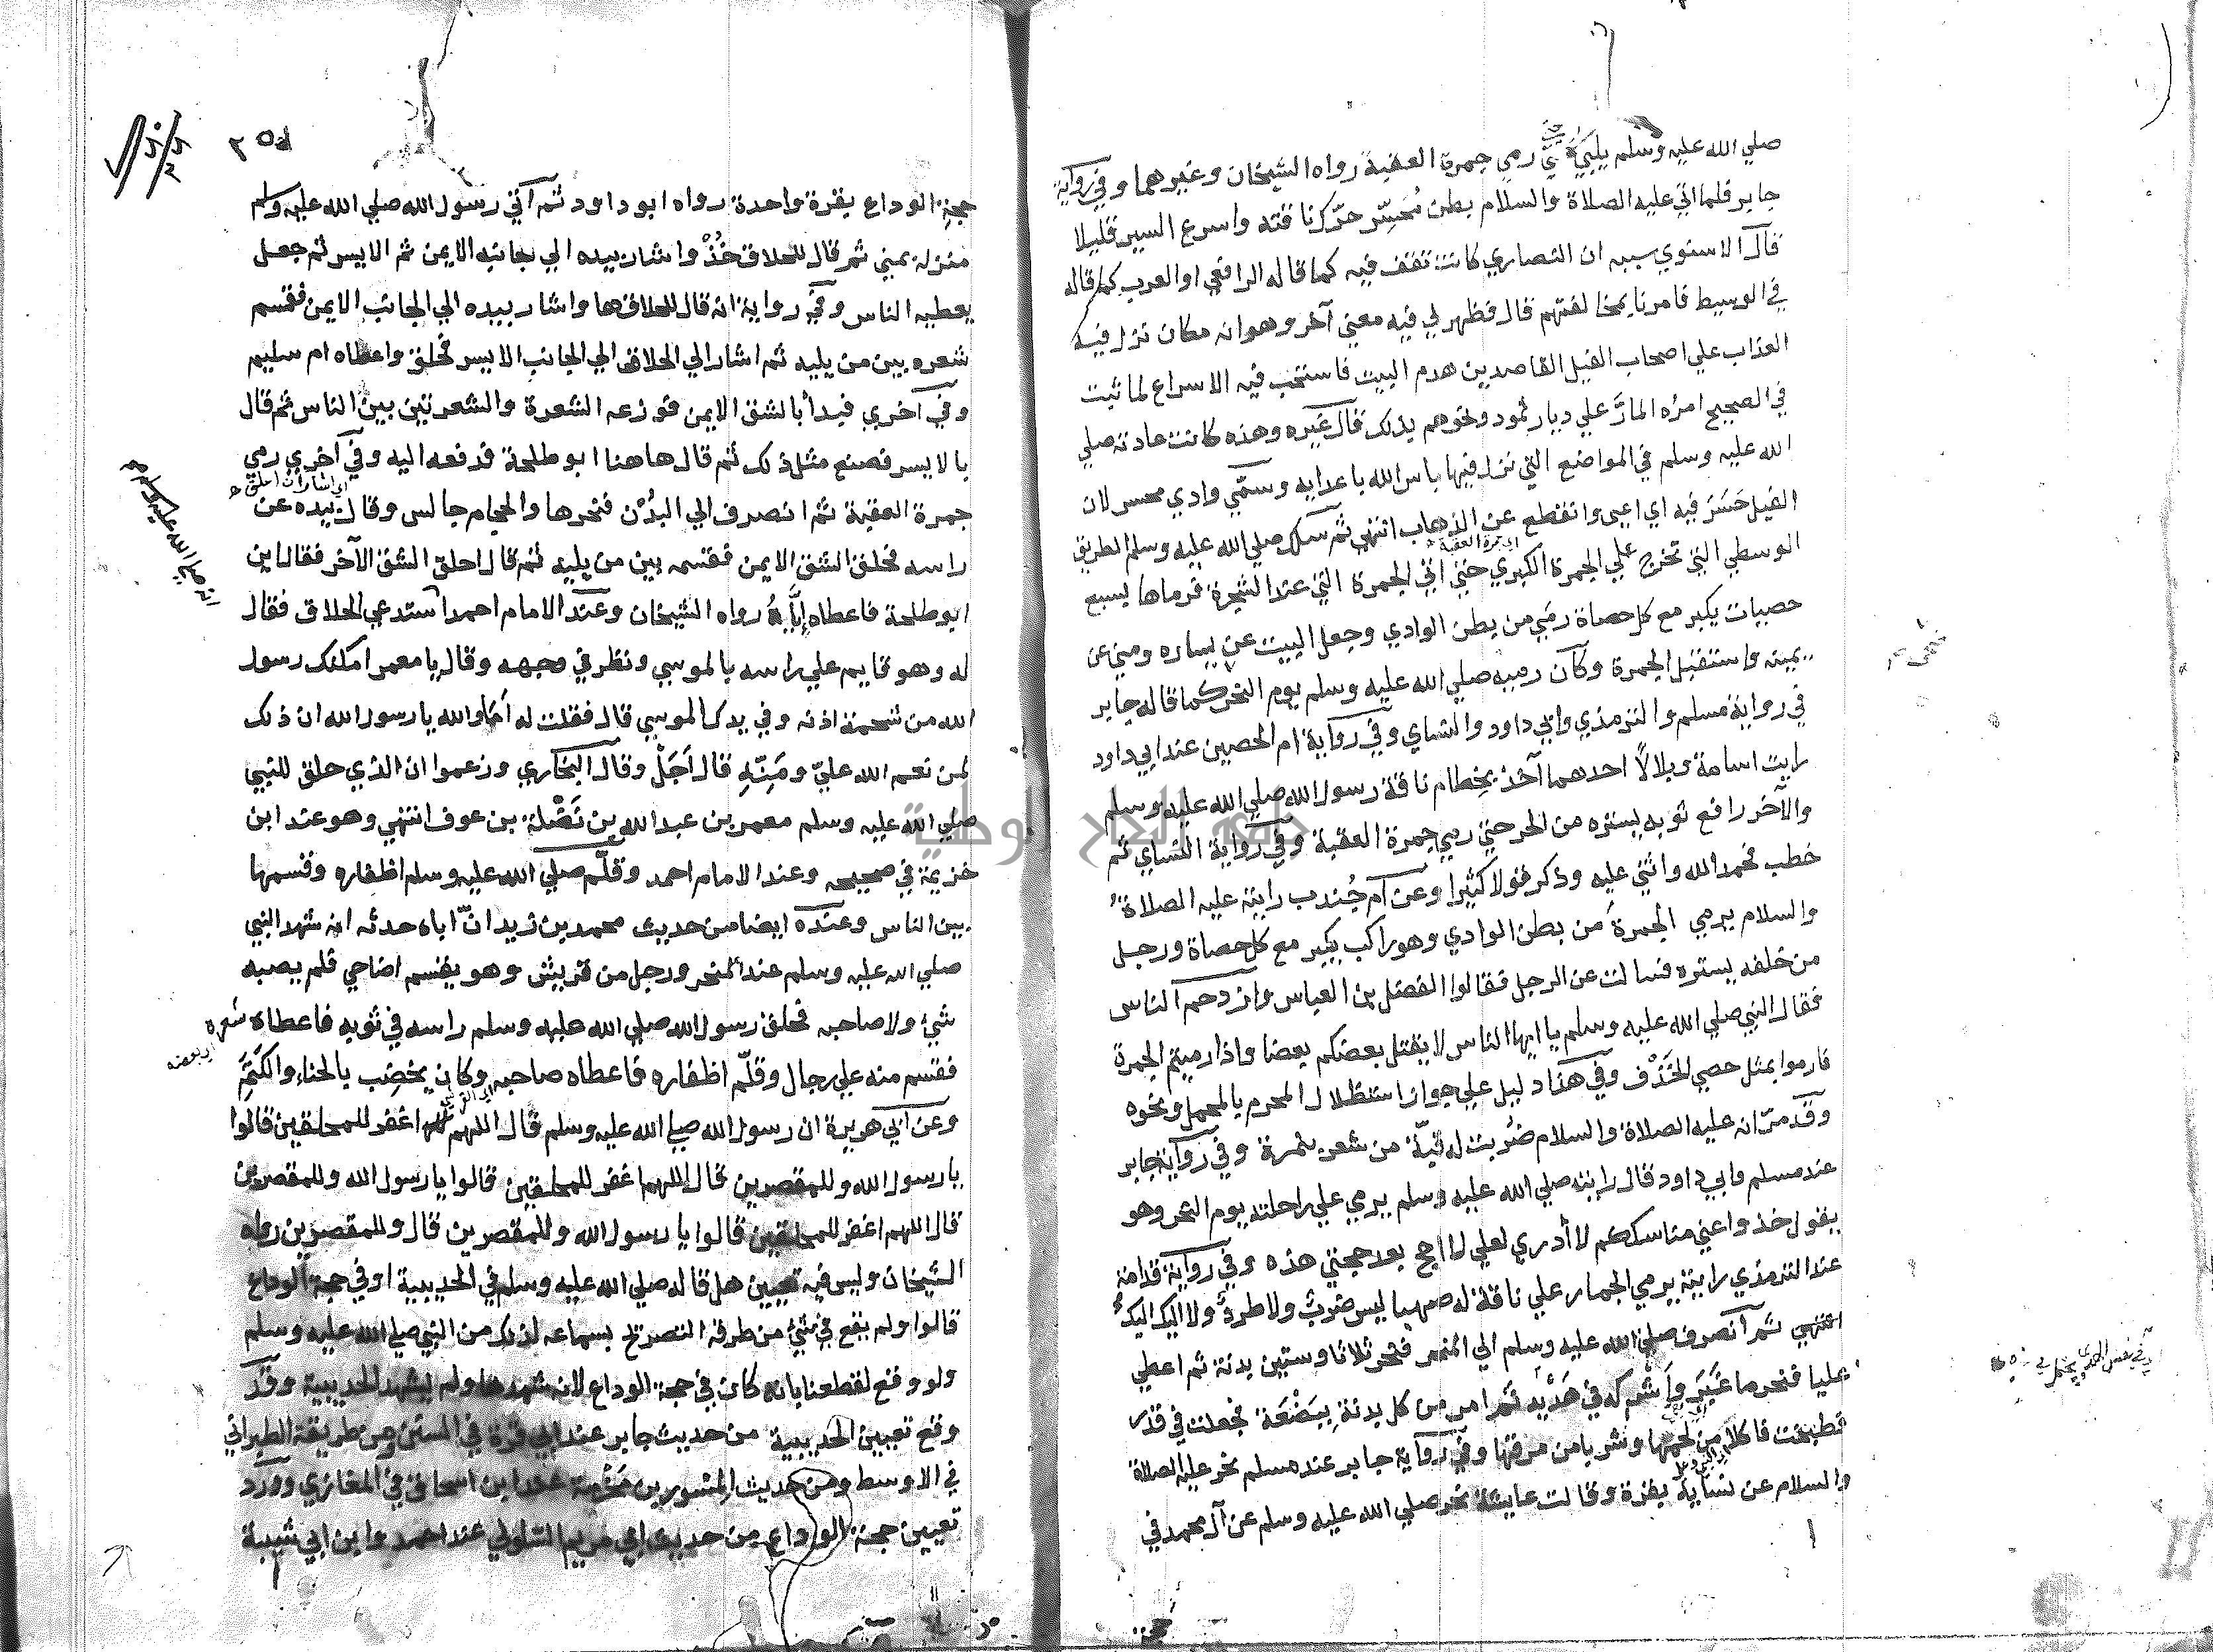 صلي الله عليه وسلم يلبي حتي رمي جمرة العقبة رواه الشيخان وغيرهما وفي رواية
جابر فلما اتي عليه الصلاة والسلام بطن مُحَسِّر حرّك ناقته واسرع السير قليلا
قال الاسنوي سببه ان النصاري كانت تقف فيه كما قاله الرافعي او العرب كما قاله
في الوسيط فامرنا بمخالفتهم قال فظهر لي فيه معني آخر وهو انه مكان نزل فيه
العذاب علي اصحاب الفيل القاصدين هدم البيت فاستحب فيه الاسراع لما ثبت
في الصحيح امره المارّ علي ديار ثمود ونحوهم بذلك قال غيره وهذه كانت عادته صلي
الله عليه وسلم في المواضع التي نزل فيها باس الله باعدايه وسمّي وادي محسر لان
الفيل حَسَرَ فيه اي اعيى وانقطع عن الذهاب انتهي ثم سلك صلي الله عليه وسلم الطريق
اي جمرة العقبة
الوسطي التي تخرج علي الجمرة الكبري حتي اتي الجمرة التي عند الشجرة فرماها بسبع
حصيات يكبر مع كل حصاة رمَي من بطن الوادي وجعل البيت عن يساره ومني عن
يمينه واستقبل الجمرة وكان رميه صلي الله عليه وسلم يوم النحر كما قاله جابر
ضحى
في رواية مسلم والترمذي وابي داود والنساي وفي رواية ام الحصين عند ابي داود
رايت اسامة وبلالاً احدهما آخذ بخطام ناقة رسول الله صلي الله عليه وسلم
والآخر رافع ثوبه يستره من الحر حتي رمي جمرة العقبة وفي رواية النساي ثم
خطب فحمد الله واثني عليه وذكر قولا كثيرا وعن ام جُندب رايته عليه الصلاة
والسلام يرمي الجمرة من بطن الوادي وهو راكب يكبر مع كل حصاة ورجل
من خلفه يستره فسالت عن الرجل فقالوا الفضل بن العباس وازدحم الناس
فقال النبي صلي الله عليه وسلم يا ايها الناس لا يقتل بعضكم بعضا واذا رميتم الجمرة
فارموا بمثل حصي الخَذْف وفي هذا دليل علي جواز استظلال المحرم بالمحمل ونحوه
وقد مرّ انه عليه الصلاة والسلام ضُربت له قبّة من شعر بنمرة وفي رواية جابر
عند مسلم وابي داود قال رايته صلي الله عليه وسلم يرمي علي راحلته يوم النحر وهو
يقول خذوا عني مناسككم لا أدري لعلي لا احج بعد حجتي هذه وفي رواية قدامة
عند الترمذي رايته يرمي الجمار علي ناقة له صهبا ليس ضربٌ ولا طردٌ ولا اليك اليك
انتهي ثم انصرف صلي الله عليه وسلم الي المنحر فنحر ثلاثا وستين بدنة ثم اعطي
عليا فنحر ما غَبَرَ واَشركه في هَدْيه ثم امر من كل بدنة بِبَضْعَة فجعلت في قدر
فطبخت فاكلا من لحمها وشربا من مرقها وفي رواية جابر عند مسلم نحر عليه الصلاة
والسلام عن نسايه بقرة وقالت عايشة نحر صلي الله عليه وسلم عن آل محمد في
حجة
جامعة النجاح الوطنية
٢٥٠
حجة الوداع بقرة واحدة رواه ابو داود ثم آتي رسول الله صلي الله عليه وسلم
منزله بمني ثم قال للحلاق خُذْ واشار بيده الي جانبه الايمن ثم الايسر ثم جعل
يعطيه الناس وفي رواية انه قال للحلاق ها واشار بيده الي الجانب الايمن فقسم
شعره بين من يليه ثم اشار الي الحلاق الي الجانب الايسر فحلق واعطاه ام سليم
وفي آخري فبدأ بالشق الايمن فوزعه الشعرة والشعرتين بين الناس ثم قال
بالايسر فصنع مثل ذلك ثم قال هاهنا ابو طلحة فدفعه اليه وفي آخري رمي
اي اشار ان احلق
جمرة العقبة ثم انصرف الي البُدْن فنحرها والحجام جالس وقال بيده عن
انه صلي الله عليه وسلم
راسه فحلق الشق الايمن فقسمه بين من يليه ثم قال احلق الشق الآخر فقال اين
ابو طلحة فاعطاه إِيَّاهُ رواه الشيخان وعند الامام احمد استدعي الحلاق فقال
له وهو قايم علي راسه بالموسي ونظر في وجهه وقال يا معمر امكنك رسول
الله من شحمة اذنه وفي يدك الموسي قال فقلت له أما والله يا رسول الله ان ذلك
لمن نعم الله عليّ ومَنِّهِ قال أجَلْ وقال البخاري وزعموا ان الذي حلق للنبي
صلي الله عليه وسلم معمر بن عبد الله بن نَضْلة بن عوف انتهي وهو عند ابن
خزيمة في صحيحه وعند الامام احمد وقلّم صلي الله عليه وسلم اظفاره وقسمها
بين الناس وعنده ايضا من حديث محمد بن زيد انّ اباه حدثه انه شهد النبي
صلي الله عليه وسلم عند المنحر ورجل من قريش وهو يقسم اضاحي فلم يصبه
شئ ولا صاحبه فحلق رسول الله صلي الله عليه وسلم راسه في ثوبه فاعطاه شعره
اي بعضه
فقسم منه علي رجال وقلّم اظفاره فاعطاه صاحبه وكان يخضِب بالحناء والكَتَم
وعن ابي هريرة ان رسول الله صلي الله عليه وسلم قال اللهم اغفر للمحلقين قالوا
يا رسول الله وللمقصرين قال اللهم اغفر للمحلقين قالوا يا رسول الله وللمقصرين
قال اللهم اغفر للمحلقين قالوا يا رسول الله وللمقصرين قال وللمقصرين رواه
الشيخان وليس فيه تعيين هل قاله صلي الله عليه وسلم في الحديبية او في حجة الوداع
قالوا ولم يقع في شئ من طرقه التصريح بسماعه لذلك من النبي صلي الله عليه وسلم
ولو وقع لقطعنا بانه كان في حجة الوداع لانه شهدها ولم يشهد الحديبية وقد
وقع تعيين الحديبية من حديث جابر عند ابي قرة في السنن ومن طريقه الطبراني
في الاوسط ومن حديث المسور بن مَخْرَمة عند ابن اسحاق في المغازي وورد
تعيين حجة الوداع من حديث ابي مريم السلولي عند احمد وابن ابي شيبة